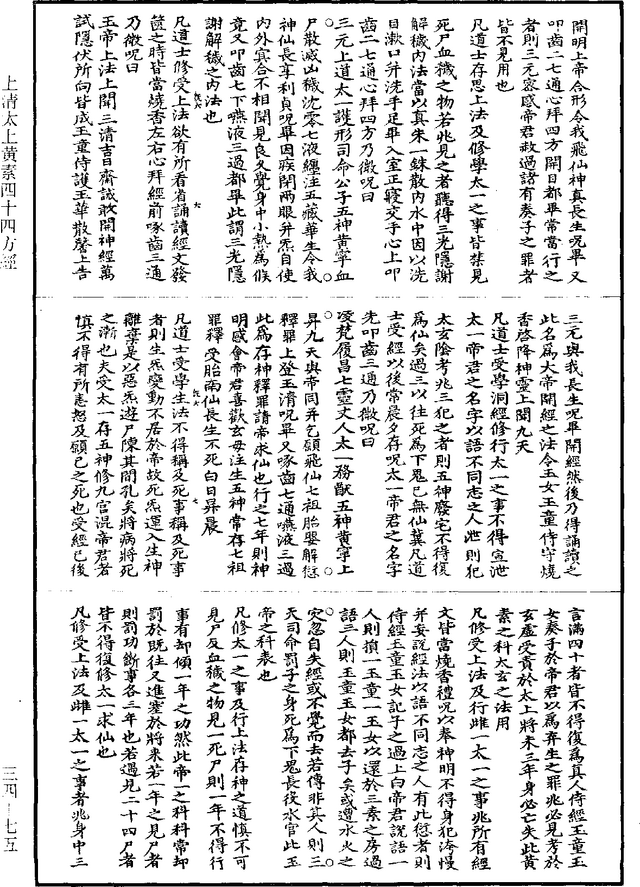 開明上帝合形令我飛仙神真長生呪畢又
叩齒二七通心拜四方開目都畢常當行之
者則三元密感帝君赦過諸有奏子之罪者
皆不見用也
凡道士存思上法及修學太一之事皆禁見
死尸血穢之物若兆見之者聽得三光隱謝
解穢内法當以真朱一銖散内水中因以洗
目漱口并洗手足畢入室正寢交手心上叩
齒二七通心拜四方乃微呪曰
三元上道太一護形司命公子五神黃寧血
尸散滅凶穢沈零七液纏注五藏華生令我
神仙長享利貞呪畢因疾閉兩眼并炁自使
内外冥合不相聞見良久覺身中小熱為候
竟又叩齒七下嚥液三過都畢此謂三光隱
謝解穢之内法也
凡道士修受上法欲有所看省誦讀經文發
篋之時皆當燒香左右心拜經前啄齒三通
乃微呪曰
玉帝上法上聞三清吉日齋誠敢開神經萬
試隱伏所向皆成玉童侍護玉華散馨上告
三元與我長生呪畢開經然後乃得誦讀之
此名為大帝開經之法令玉女玉童侍守燒
香啓降神靈上聞九天
凡道士受學洞經修行太一之事不得宣泄
太一帝君之名字以語不同志之人泄則犯
太玄陰考兆三犯之者則五神廢宅不得復
為仙矣過三以往死為下鬼已無仙冀凡道
士受經以後常晨夕存呪太一帝君之名字
先叩齒三通乃微呪曰
凌梵履昌七靈丈人太一務猷五神黃寧上
昇九天與帝同并乞願飛仙七祖胎嬰解愆
釋罪上登玉清呪畢又啄齒七通嚥液三過
此為存神釋罪請帝求仙也行之七年則神
明感會帝君喜歡玄母注生五神常存七祖
罪釋受胎南仙長生不死白日昇晨
凡道士受學生法不得稱及死事稱及死事
者則生炁變動不居於帝故死炁運入生神
離棄是以惡炁遊尸陳其間孔矣將病將死
之漸也夫受太一存五神修九宫混帝君者
慎不得有所恚怒及願己之死也受經已後
言滿四十者皆不得復為真人侍經玉童玉
女奏子於帝君以為弃生之罪兆必見考於
玄虛受責於太上將未三年身必亡失此黃
素之科太玄之法用
凡修受上法及行雌一太一之事兆所有經
文皆當燒香禮呪以奉神明不得身犯洿慢
并妄說經法以語不同志之人有此愆者則
侍經玉童玉女記子之過上白帝君說語一
人則損一玉童一玉女以還於三素之房過
語三人則玉童玉女都去子矣或遭水火之
灾忽自失經或不覺而去若傳非其人則三
天司命罰子之身死為下鬼長役水官此玉
帝之科表也
凡修太一之事及行上法存神之道慎不可
見尸及血穢之物見一死尸則一年不得行
事有却傾一年之功然此帝一之科科常却
罰於既往又進塞於將來若一年之見尸者
則罰功斷事各三年也若遇見二十四尸者
皆不得復修太一求仙也
凡修受上法及雌一太一之事者兆身中三
上清太上黃素四十四方經
三四—七五